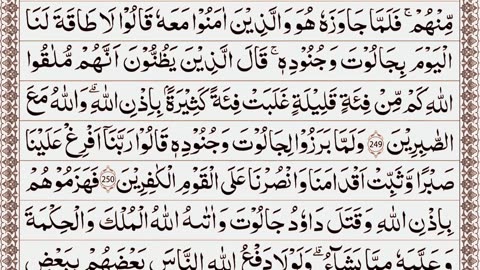 مِّنْهُمْ ۚ فَلَمَّا جَاوَزَهٗ هُوَ وَالَّذِيْنَ اٰمَنُوْا مَعَهٗ قَالُوْا لَا طَاقَةَ لَنَا
الْيَوْمَ بِجَالُوْتَ وَجُنُوْدِهٖ ۚ قَالَ الَّذِيْنَ يَظُنُّوْنَ اَنَّهُمْ مُّلٰقُوا
اللّٰهِ كَمْ مِّنْ فِئَةٍ قَلِيْلَةٍ غَلَبَتْ فِئَةً كَثِيْرَةًۢ بِاِذْنِ اللّٰهِ ۗ وَاللّٰهُ مَعَ
الصّٰبِرِيْنَ 249 وَلَمَّا بَرَزُوْا لِجَالُوْتَ وَجُنُوْدِهٖ قَالُوْا رَبَّنَآ اَفْرِغْ عَلَيْنَا
صَبْرًا وَّثَبِّتْ اَقْدَامَنَا وَانْصُرْنَا عَلَى الْقَوْمِ الْكٰفِرِيْنَ 250 فَهَزَمُوْهُمْ
بِاِذْنِ اللّٰهِ وَقَتَلَ دَاوٗدُ جَالُوْتَ وَاٰتٰىهُ اللّٰهُ الْمُلْكَ وَالْحِكْمَةَ
وَعَلَّمَهٗ مِمَّا يَشَآءُ ۗ وَلَوْلَا دَفْعُ اللّٰهِ النَّاسَ بَعْضَهُمْ بِبَعْضٍ